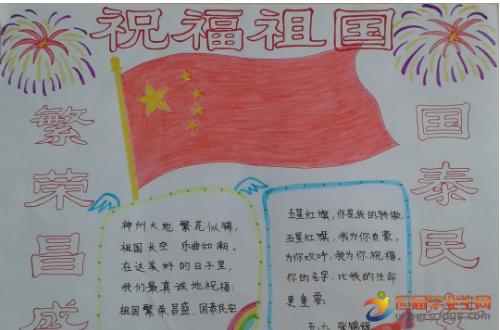 祝福祖国
繁荣昌盛
国泰民
神州大地 繁花似锦,
祖国长空 乐曲如潮。
在这美好的日子里,
我们最真诚地祝福:
祖国繁荣昌盛、国泰民安
五星红旗,你是我的骄傲,
五星红旗,我为你自豪,
为你欢呼,我为你祝福,
你的名字,比我的生命
更重要。
五、六